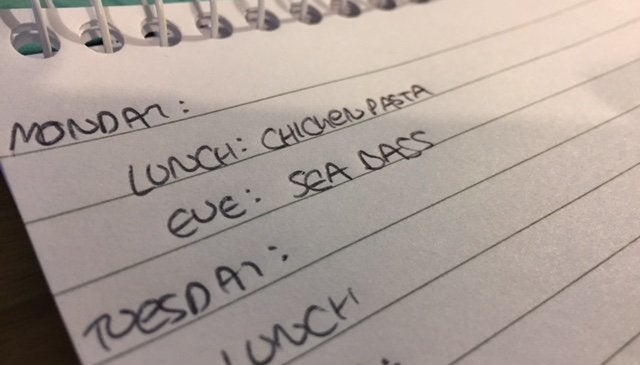 MONDAY:
LUNCH: CHICKEN PASTA
EVE: SEA BASS
TUESDAY:
LUNCH